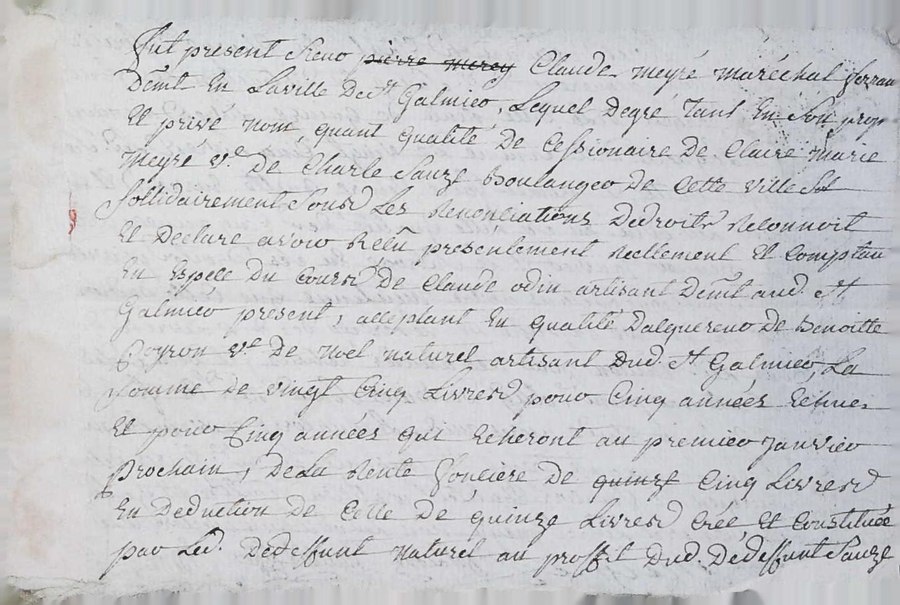 Fut présent Sieur pierre merey Claude meyré maréchal ferran
Demt En Laville De St Galmier, Lequel De gré Tant En Son prop
Et privé nom, quant qualité De Cessionaire de Claire marie
meyre ve. De Charle Sauze Boulanger De Cette ville St
Sollidairement Sous Les Renonciations De droits Reconnoit
Et Déclare avoir Reçû présentement Réellement Et Comptan
En Espece Du Cours De Claude odin artisant Demt aud. St
Galmier présent, acceptant En qualité D'acquereur De Benoitte
Peyron ve De noel naturel artisant Dud. St Galmier, La
Somme de vingt Cinq Livres pour Cinq années Echues
Et pour Cinq années qui Echeront au premier janvier
prochain, De La Rente fonciere De quinze Cinq Livres
En Deduction De Celle De quinze Livres Crée Et Constituée
par Led. Dedeffunt naturel au proffit Dud. Dedeffunt Sauze